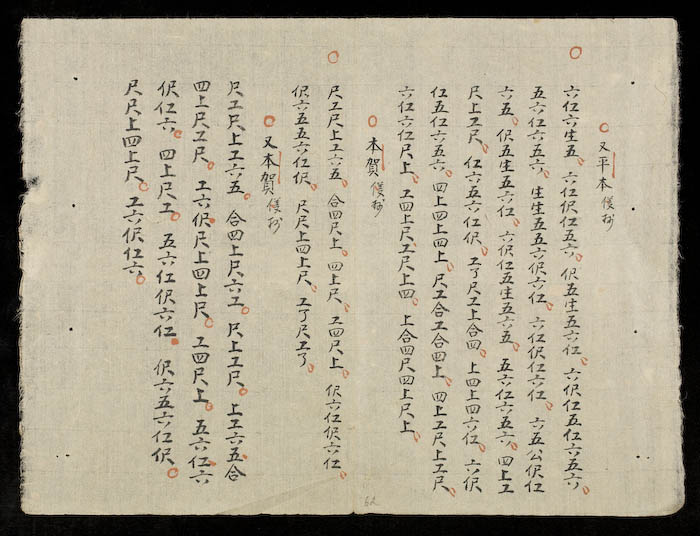 又平本
六仜六生五、六仜伬仜五六、伬五生五六仜、六伬仜五仜六五六、
五六仜六五六、生生五五六伬六仜、六仜伬仜六仜、六五公伬仜
六五、伬五生五六仜、六伬仜五生五六五、五六仜六五六、四上工
尺上工尺、仜六五六仜伬、工了尺工上合四、上四上四六仜、六伬
仜五仜六五六、四上四上四上、尺工合工合四上、四上工尺上工尺、
六仜六仜尺上、工四上尺工尺上四、上合四尺四上尺上、
本賀
尺工尺上工六五、合四尺上、四上尺、工四尺上、伬六仜伬六仜、
伬六五五六仜伬、尺尺上四上尺、工了尺工了、
又本賀
尺工尺上工六五、合四上尺六工、尺上工尺、上工六五合
四上尺工尺、工六伬尺上四上尺、工四尺上、五六仜六
伬仜六、四上尺工、五六仜伬六仜、伬六五六仜伬、
尺尺上四上尺、工六伬仜六、
62